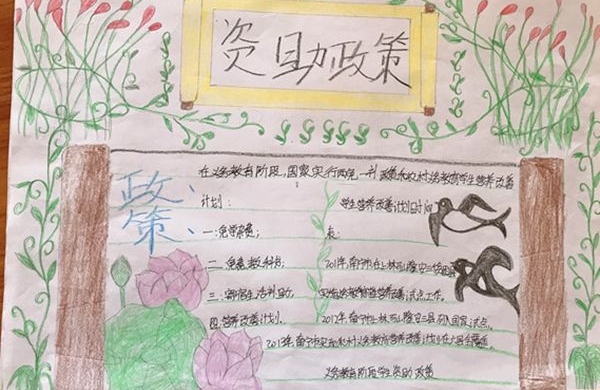 资助政策
政策
在义务教育阶段,国家实行两免一补政策和农村义务教育学生营养改善
计划:
一:免学杂费;
二:免费教科书;
三:寄宿生生活补助;
四:营养改善计划。
学生营养改善计划时间
表:
2011年,南宁市在上林马山隆安三
营养改善试点工作。
2012年南宁上林马山隆安三县列入国家试点。
2013年,南宁市农村义务教育营养改善计划
义务教育阶段学生资助政策